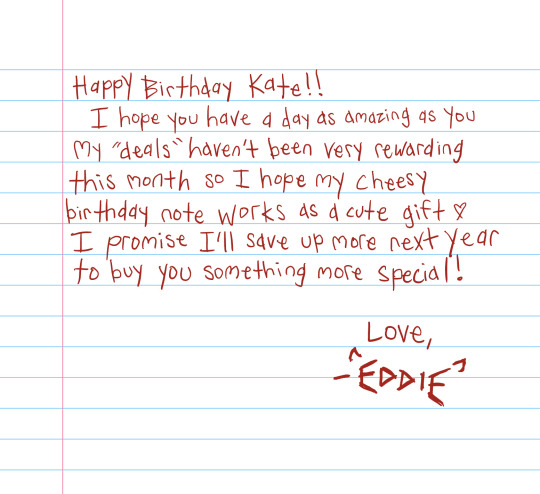 Happy Birthday Kate!!
I hope you have a day as amazing as you
My "deals" haven't been very rewarding
this month so I hope my cheesy
birthday note works as a cute gift ♡
I promise I'll save up more next year
to buy you something more special!
Love,
- "EDDIE"